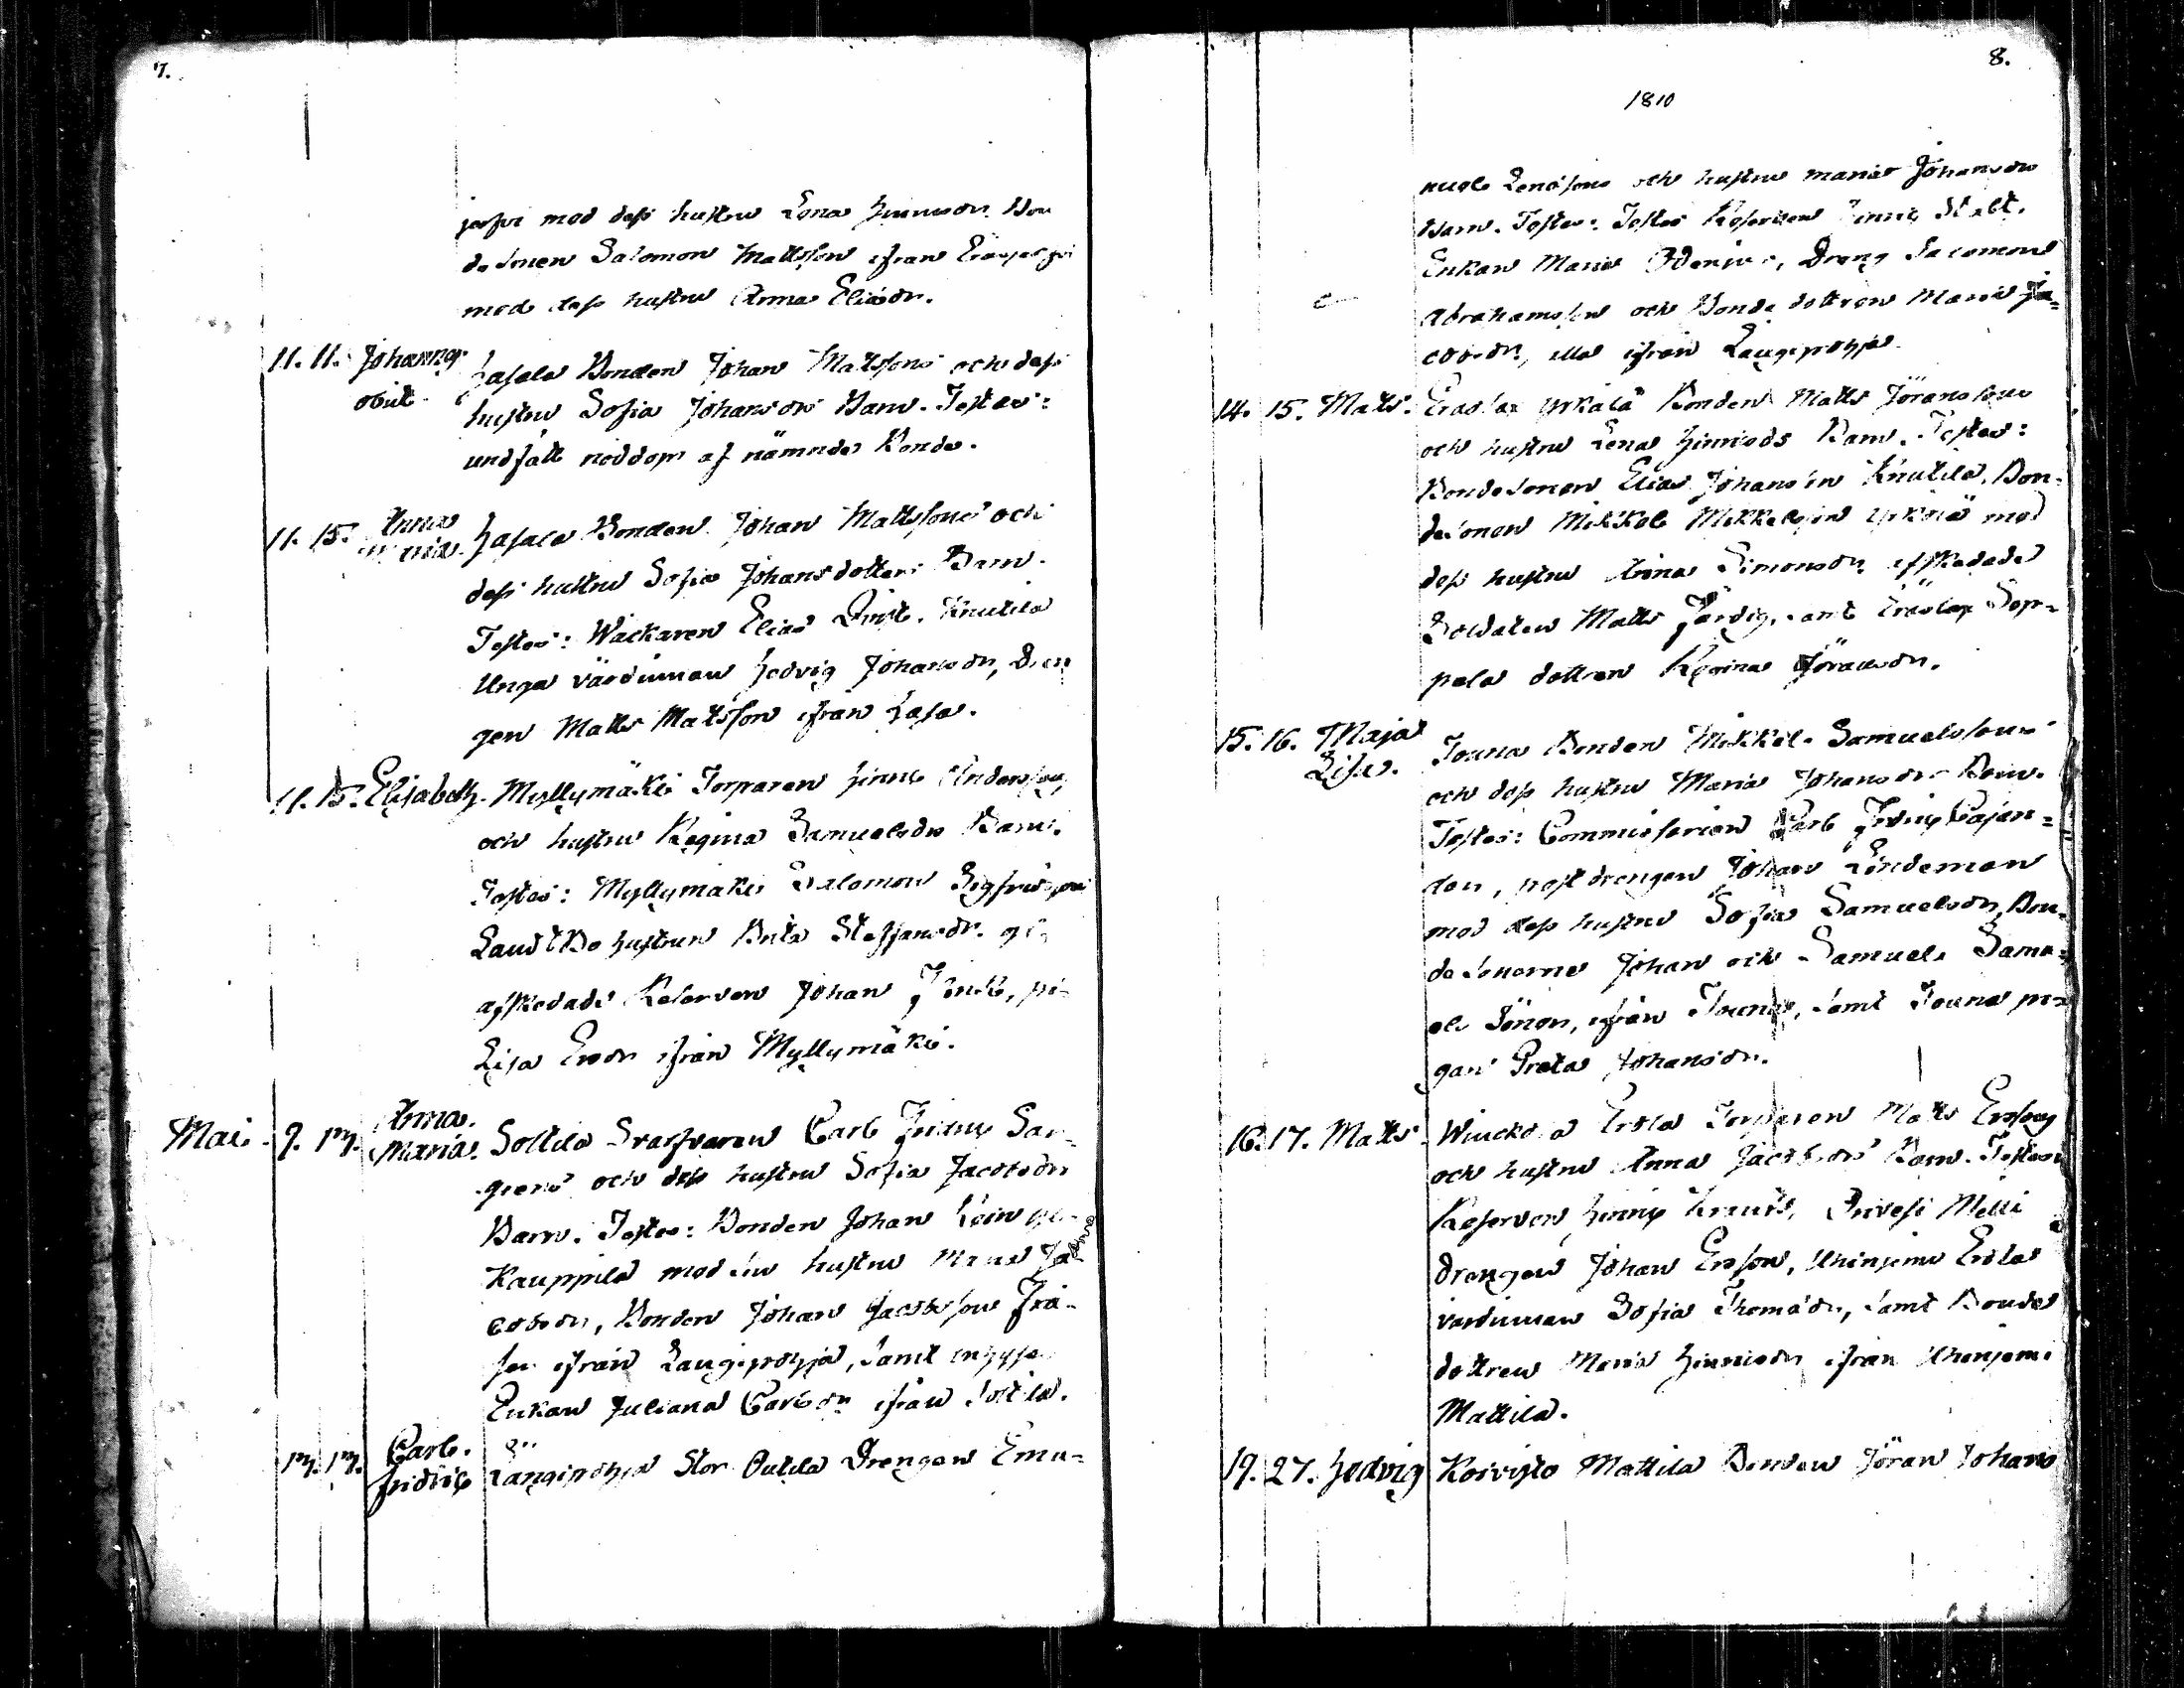 7.
med dess hustru Lena Hinricsdr. Bon
desonen Salomon Mattsson ifrån
med dess hustru Anna Eliædr.
11. 11. Johanna Hasala Bonden Johan Mattssons och dess
obiit. hustru Sofia Johansdrs Barn. Testes:
undfått nöddop af nämnde Bonde.
11. 15. Anna Maria. Hasala Bonden Johan Mattssons och
dess hustru Sofia Johansdotters Barn.
Testes: Wackaren Elias Knutila
Unga värdinnan Hedvig Johansdr, Dren
gen Matts Mattsson ifrån
11. 15. Elisabeth. Myllymäki Torparen Hinric Andersson,
och hustru Regina Samuelsdrs Barn.
Testes: Myllymäki Salomon Sigfridsson
Landtbo hustrun Brita Steffansdr.
afskedade Reserven Johan
Lisa Ersdr ifrån Myllymäki.
Maii. 9. 17. Anna Maria. Sottila Svarfvaren Carl Fridric
grens och dess hustru Sofia Jacobsdrs
Barn. Testes: Bonden Johan
Kauppila med sin hustru Maria Ja
cobsdr, Bonden Johan Jacobsson
ifrån Längipohja, samt
Enkan Juliana Carlsdr ifrån Sottila.
17. 17. Carl Fridric Längipohja Stor Outila Drengen Ema=
8.
1810
och hustru Maria Johansdrs
Barn. Testes: Reserven Hinric
Enkan Maria Dreng Salomon
Abrahamsson och Bonde dottren Maria Ja=
cobsdr, alla ifrån Längipohja.
14. 15. Matts. Eräslax Yrkälä Bonden Matts Jöransson
och hustru Lena Hinricsdrs Barn. Testes:
Bondesonen Elias Johansson Knutila, Bon=
desonen Mikkel Mikkelsson Yrkälä med
dess hustru Anna Simonsdr, afskedade
Soldaten Matts Färdig, samt Eräslax Sep=
pälä dottren Regina Jöransdr.
15. 16. Maja Lisa. Jouna Bonden Mikkel Samuelssons
och dess hustru Maria Johansdrs Barn.
Testes: Commissarien Carl Fridric Cajan=
der, post drengen Johan Lindeman
med dess hustru Sofia Samuelsdr, Bon=
de Sonerne Johan och Samuel Samu=
els Söner, ifrån Jouna, samt Jouna pi=
gan Greta Johansdr.
16. 17. Matts. Erola Torparen Matts Ersson
och hustru Anna Jacobsdrs Barn. Testes:
Reserven Hinric
Drengen Johan Ersson, Uhinjemi Erola
värdinnan Sofia Thomædr, samt Bonde
dottren Maria Hinricsdr ifrån Uhinjemi
Mattila.
19. 27. Hedvig Koivisto Mattila Bonden Jöran Johans